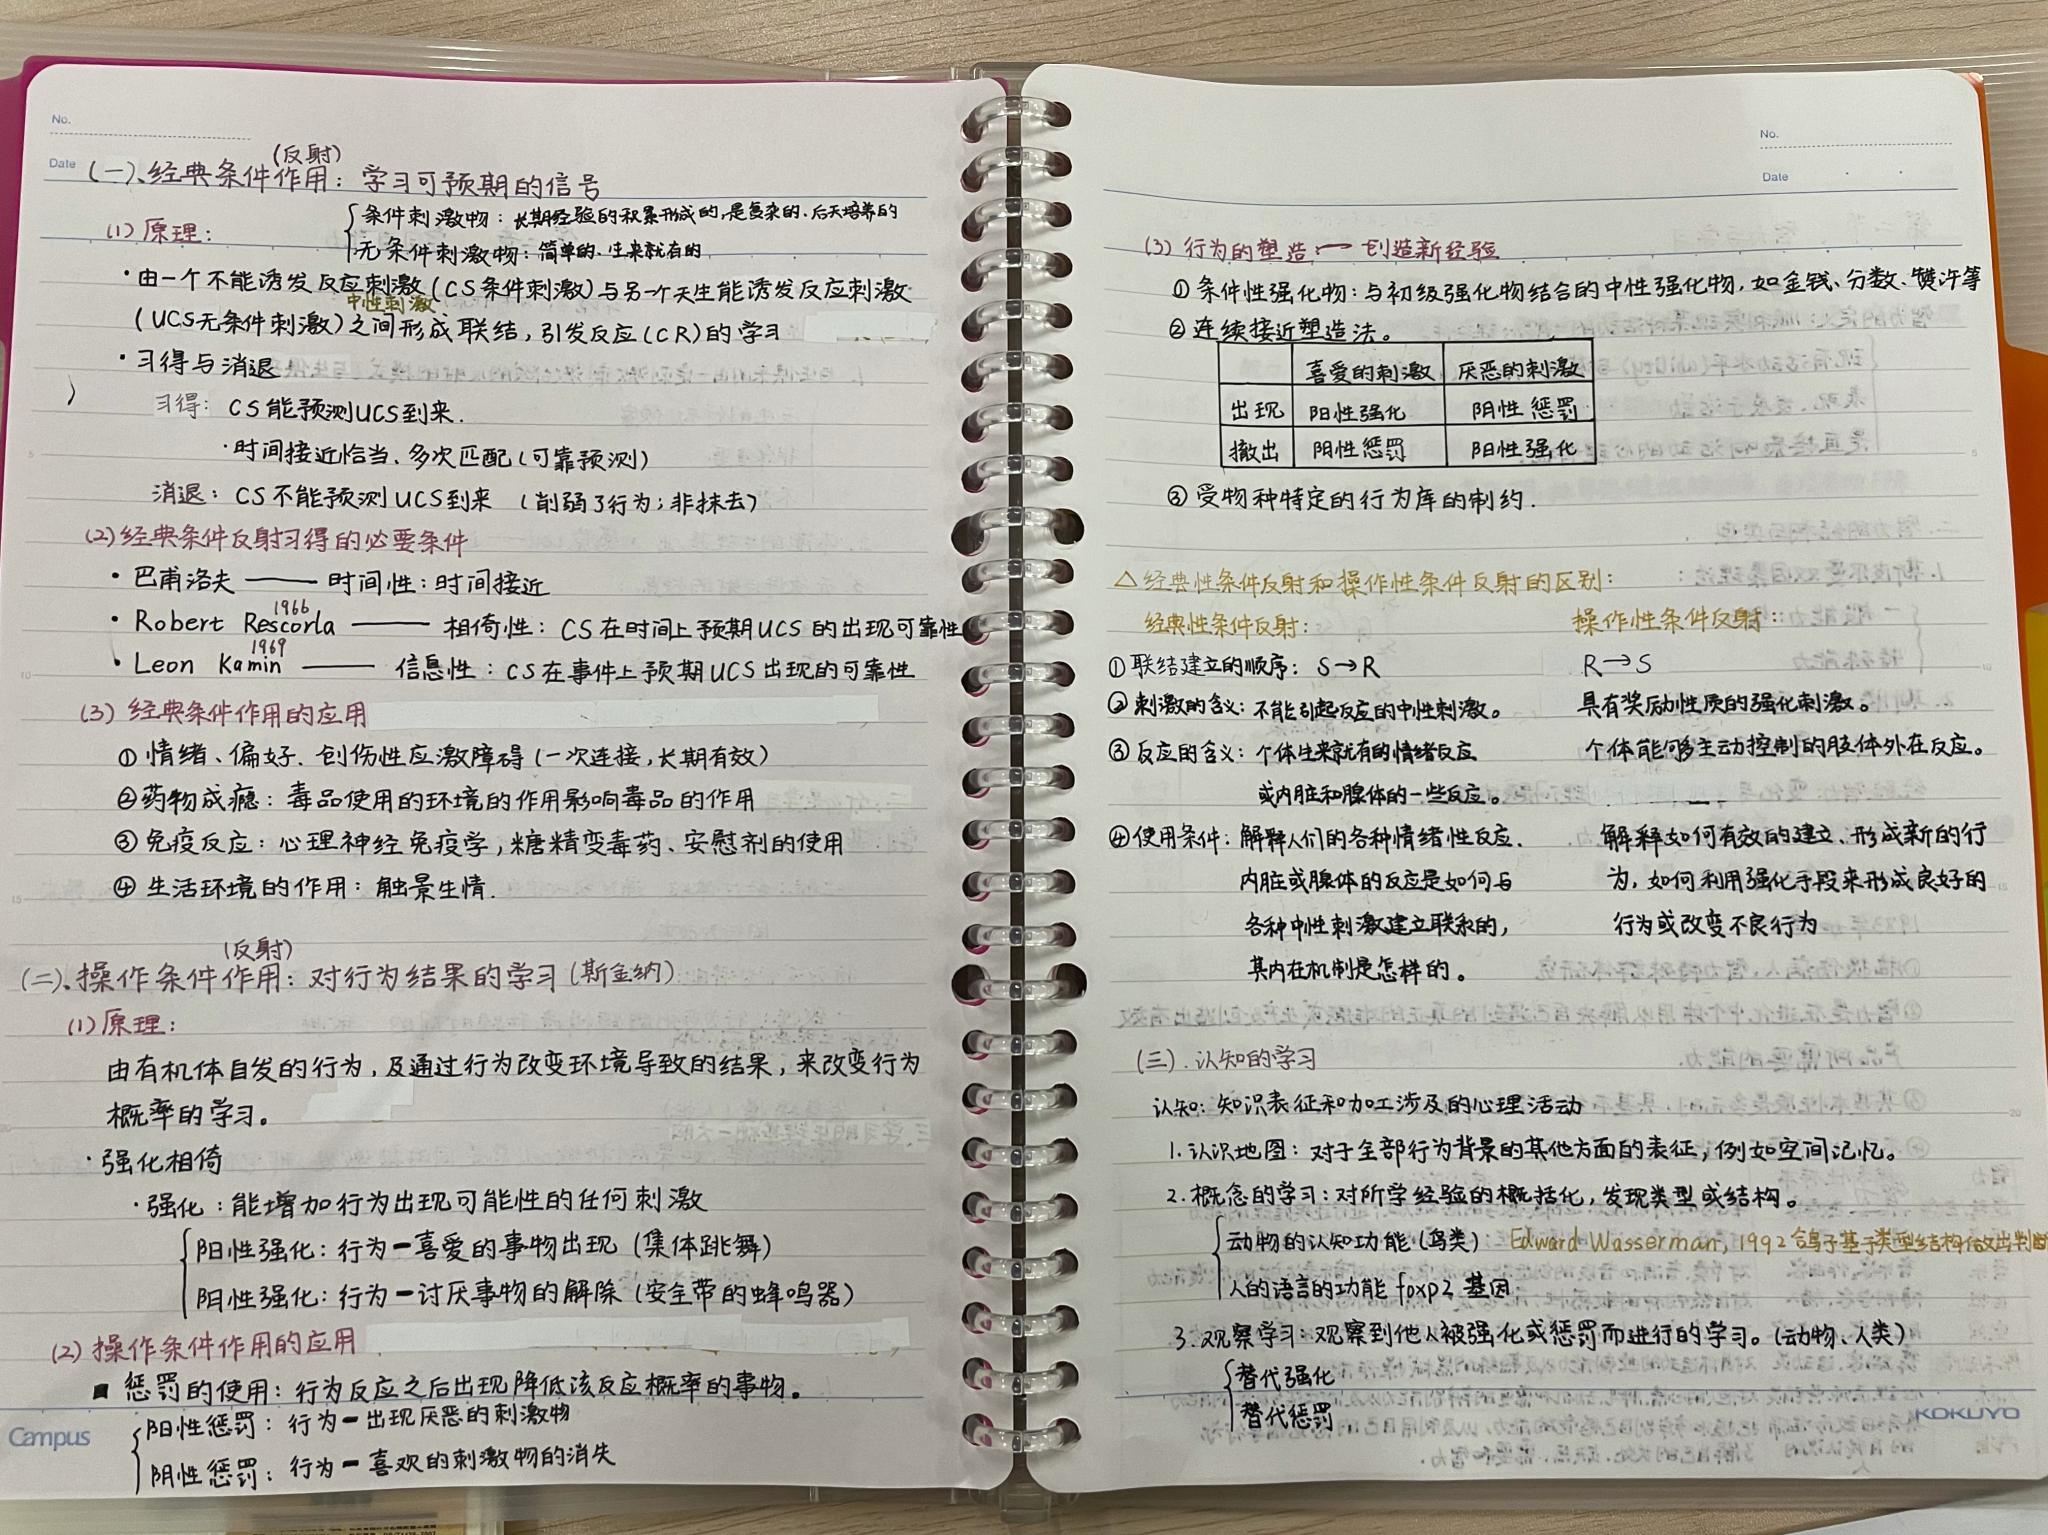 No.
Date
(反射)
(一)、经典条件作用：学习可预期的信号
(1) 原理：
条件刺激物：长期经验的积累形成的,是复杂的、后天培养的
无条件刺激物：简单的、生来就有的
·由一个不能诱发反应刺激(CS条件刺激)与另一个天生能诱发反应刺激
中性刺激
(UCS无条件刺激)之间形成联结,引发反应(CR)的学习
·习得与消退
习得：CS能预测UCS到来.
·时间接近恰当、多次匹配(可靠预测)
消退：CS不能预测UCS到来 (削弱了行为；非抹去)
(2)经典条件反射习得的必要条件
·巴甫洛夫——时间性：时间接近
1966
·Robert Rescorla——相倚性：CS在时间上预期UCS的出现可靠性
1969
·Leon Kamin——信息性：CS在事件上预期UCS出现的可靠性
(3) 经典条件作用的应用
①情绪、偏好、创伤性应激障碍(一次连接,长期有效)
②药物成瘾：毒品使用的环境的作用影响毒品的作用
③免疫反应：心理神经免疫学,糖精变毒药、安慰剂的使用
④生活环境的作用：触景生情.
(反射)
(二)、操作条件作用：对行为结果的学习(斯金纳)
(1)原理：
由有机体自发的行为,及通过行为改变环境导致的结果,来改变行为
概率的学习。
·强化相倚
·强化：能增加行为出现可能性的任何刺激
阳性强化：行为—喜爱的事物出现(集体跳舞)
阳性强化：行为—讨厌事物的解除(安全带的蜂鸣器)
(2) 操作条件作用的应用
■ 惩罚的使用：行为反应之后出现降低该反应概率的事物。
阳性惩罚：行为—出现厌恶的刺激物
阴性惩罚：行为—喜欢的刺激物的消失
Campus
No.
Date
(3) 行为的塑造：— 创造新经验
①条件性强化物：与初级强化物结合的中性强化物,如金钱、分数、赞许等
②连续接近塑造法。
喜爱的刺激 厌恶的刺激
出现 阳性强化 阴性惩罚
撤出 阴性惩罚 阳性强化
③受物种特定的行为库的制约.
△经典性条件反射和操作性条件反射的区别：
经典性条件反射： 操作性条件反射：
①联结建立的顺序：S→R R→S
②刺激的含义：不能引起反应的中性刺激。 具有奖励性质的强化刺激。
③反应的含义：个体生来就有的情绪反应 个体能够主动控制的肢体外在反应。
或内脏和腺体的一些反应。
④使用条件：解释人们的各种情绪性反应. 解释如何有效的建立、形成新的行
内脏或腺体的反应是如何与 为,如何利用强化手段来形成良好的
各种中性刺激建立联系的, 行为或改变不良行为
其内在机制是怎样的。
(三).认知的学习
认知：知识表征和加工涉及的心理活动
1.认识地图：对于全部行为背景的其他方面的表征,例如空间记忆。
2.概念的学习：对所学经验的概括化,发现类型或结构。
动物的认知功能(鸟类) Edward Wasserman,1992鸽子基于类型结构做出判断
人的语言的功能 foxp2 基因
3.观察学习：观察到他人被强化或惩罚而进行的学习。(动物、人类)
替代强化
替代惩罚
KOKUYO